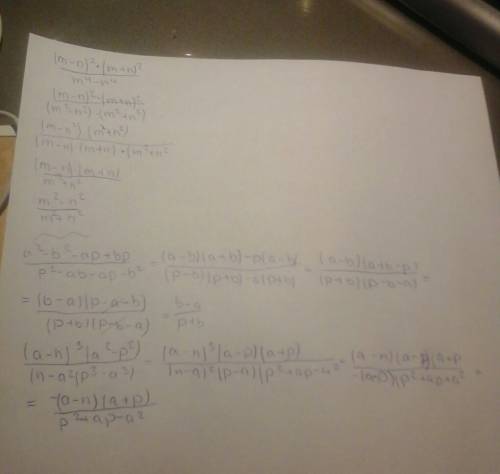 (m-n)²·(m+n)² / m⁴-n⁴
(m-n)²·(m+n)² / (m²-n²)·(m²+n²)
(m-n²)·(m+n²) / (m-n)·(m+n)·(m²+n²
(m-n)·(m+n) / m²+n²
m²-n² / m²+n²
a²-b²-ap+bp / p²-ab-ap-b² = (a-b)(a+b)-p(a-b) / (p-b)(p+b)-a(p+b) = (a-b)(a+b-p) / (p+b)(p-b-a) =
= (b-a)(p-a-b) / (p+b)(p-b-a) = b-a / p+b
(a-n)³(a²-p²) / (n-a²(p³-a³) = (a-n)³(a-p)(a+p) / (n-a)²(p-a)(p²+ap-a² = (a-n)(a-p)(a+p / -(a-p)(p²+ap+a² =
= -(a-n)(a+p) / p²+ap-a²